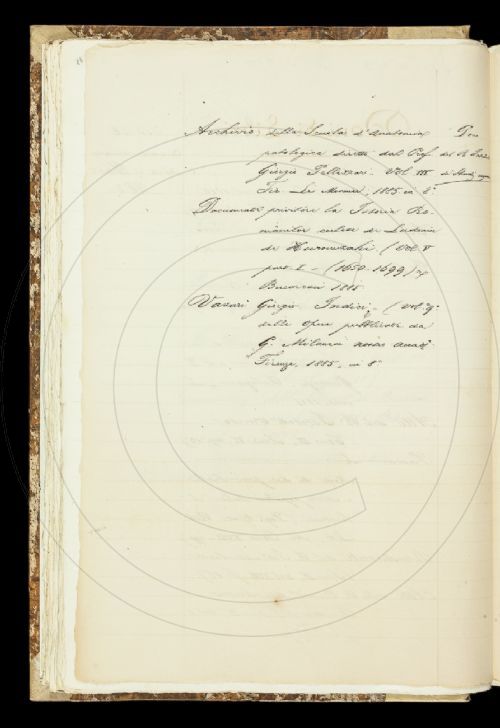 Archivio della Scuola d'Anatomia
patologica diretta dal Prof.
Giorgio Pellizzari. Vol. III
Fir. Le Monnier, 1885 in 8°
Documente privitóre la Istoria Ro-
mânilor culese de Eudoxiu
de Hurmuzaki (Vol. V
part. I - (1650-1699)
Bucuresci 1885
Vasari Giorgio Indici - (vol. 9.
delle Opere pubblicate da
G. Milanesi
Firenze, 1885, in 8°